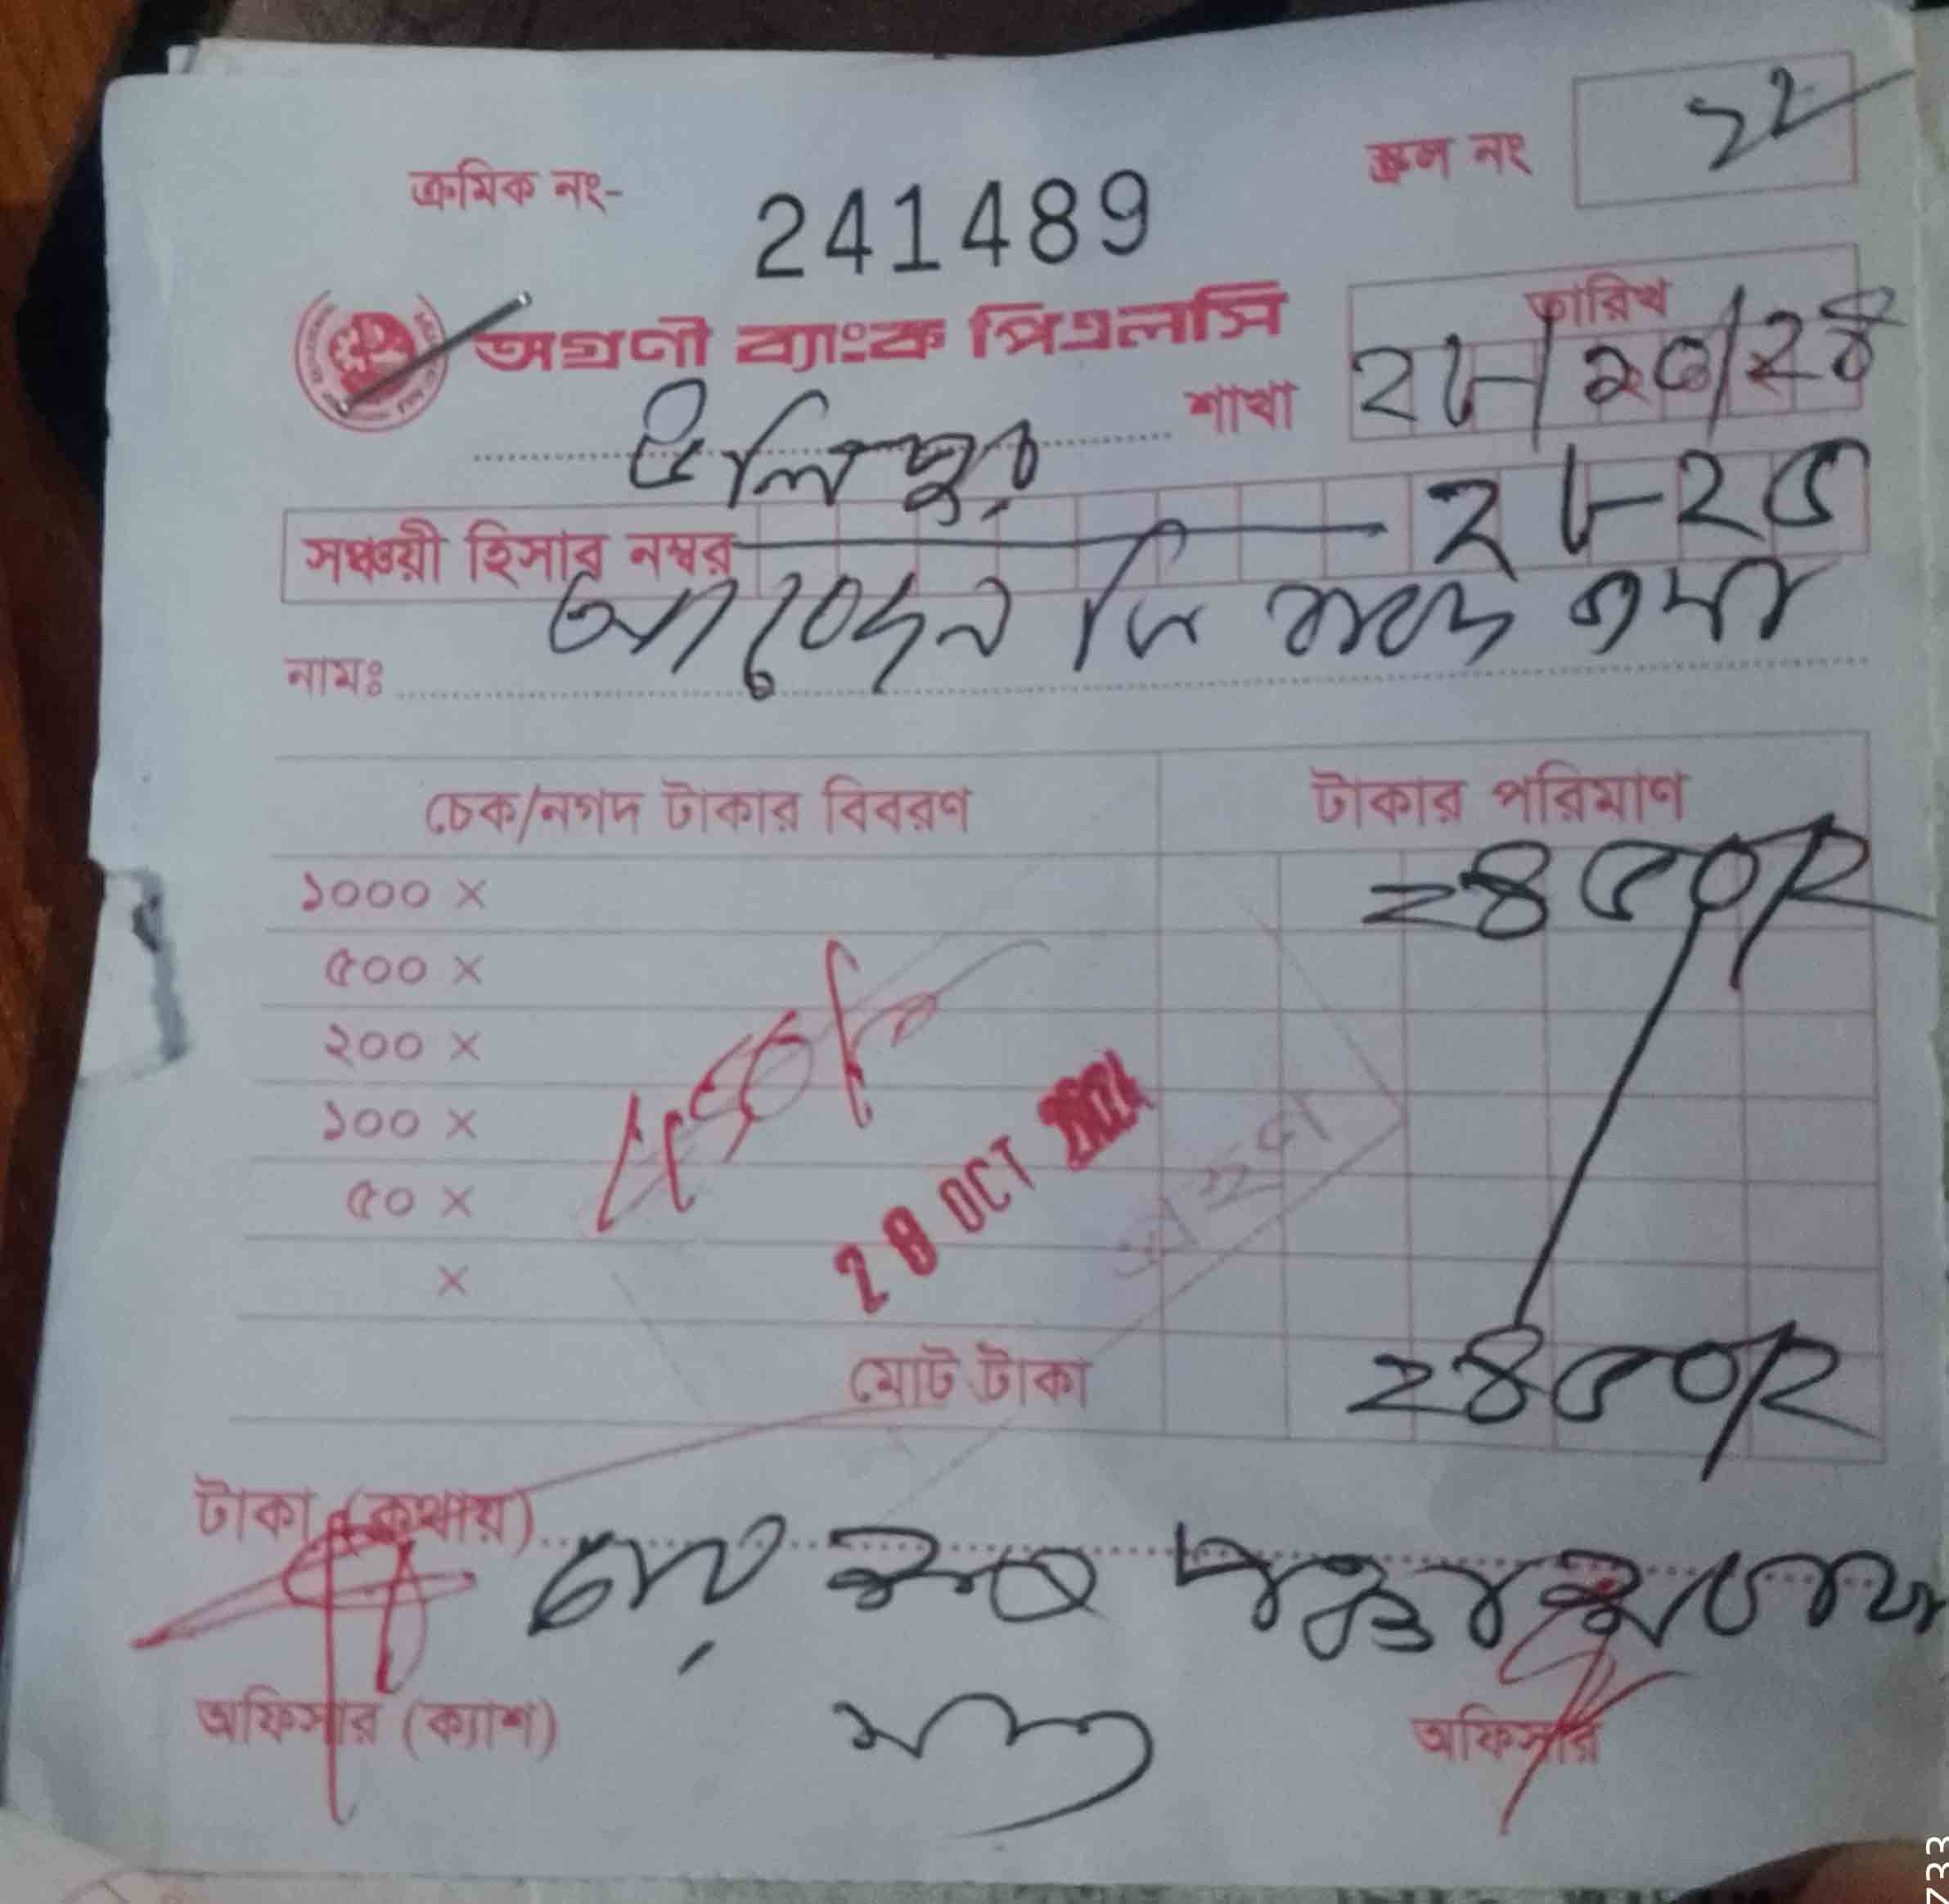 ক্রমিক নং- 241489
স্ক্রল নং ১২
অগ্রণী ব্যাংক পিএলসি
তারিখ
২৮/১০/২৪
উলিপুর শাখা
সঞ্চয়ী হিসাব নম্বর ২৮২৫
নামঃ
চেক/নগদ টাকার বিবরণ টাকার পরিমাণ
১০০০ × =৪৫০/=
৫০০ ×
২০০ ×
১০০ ×
৫০ ×
×
28 OCT 2024
মোট টাকা =৪৫০/=
টাকা (কথায়)
মাত্র
অফিসার (ক্যাশ) অফিসার
733